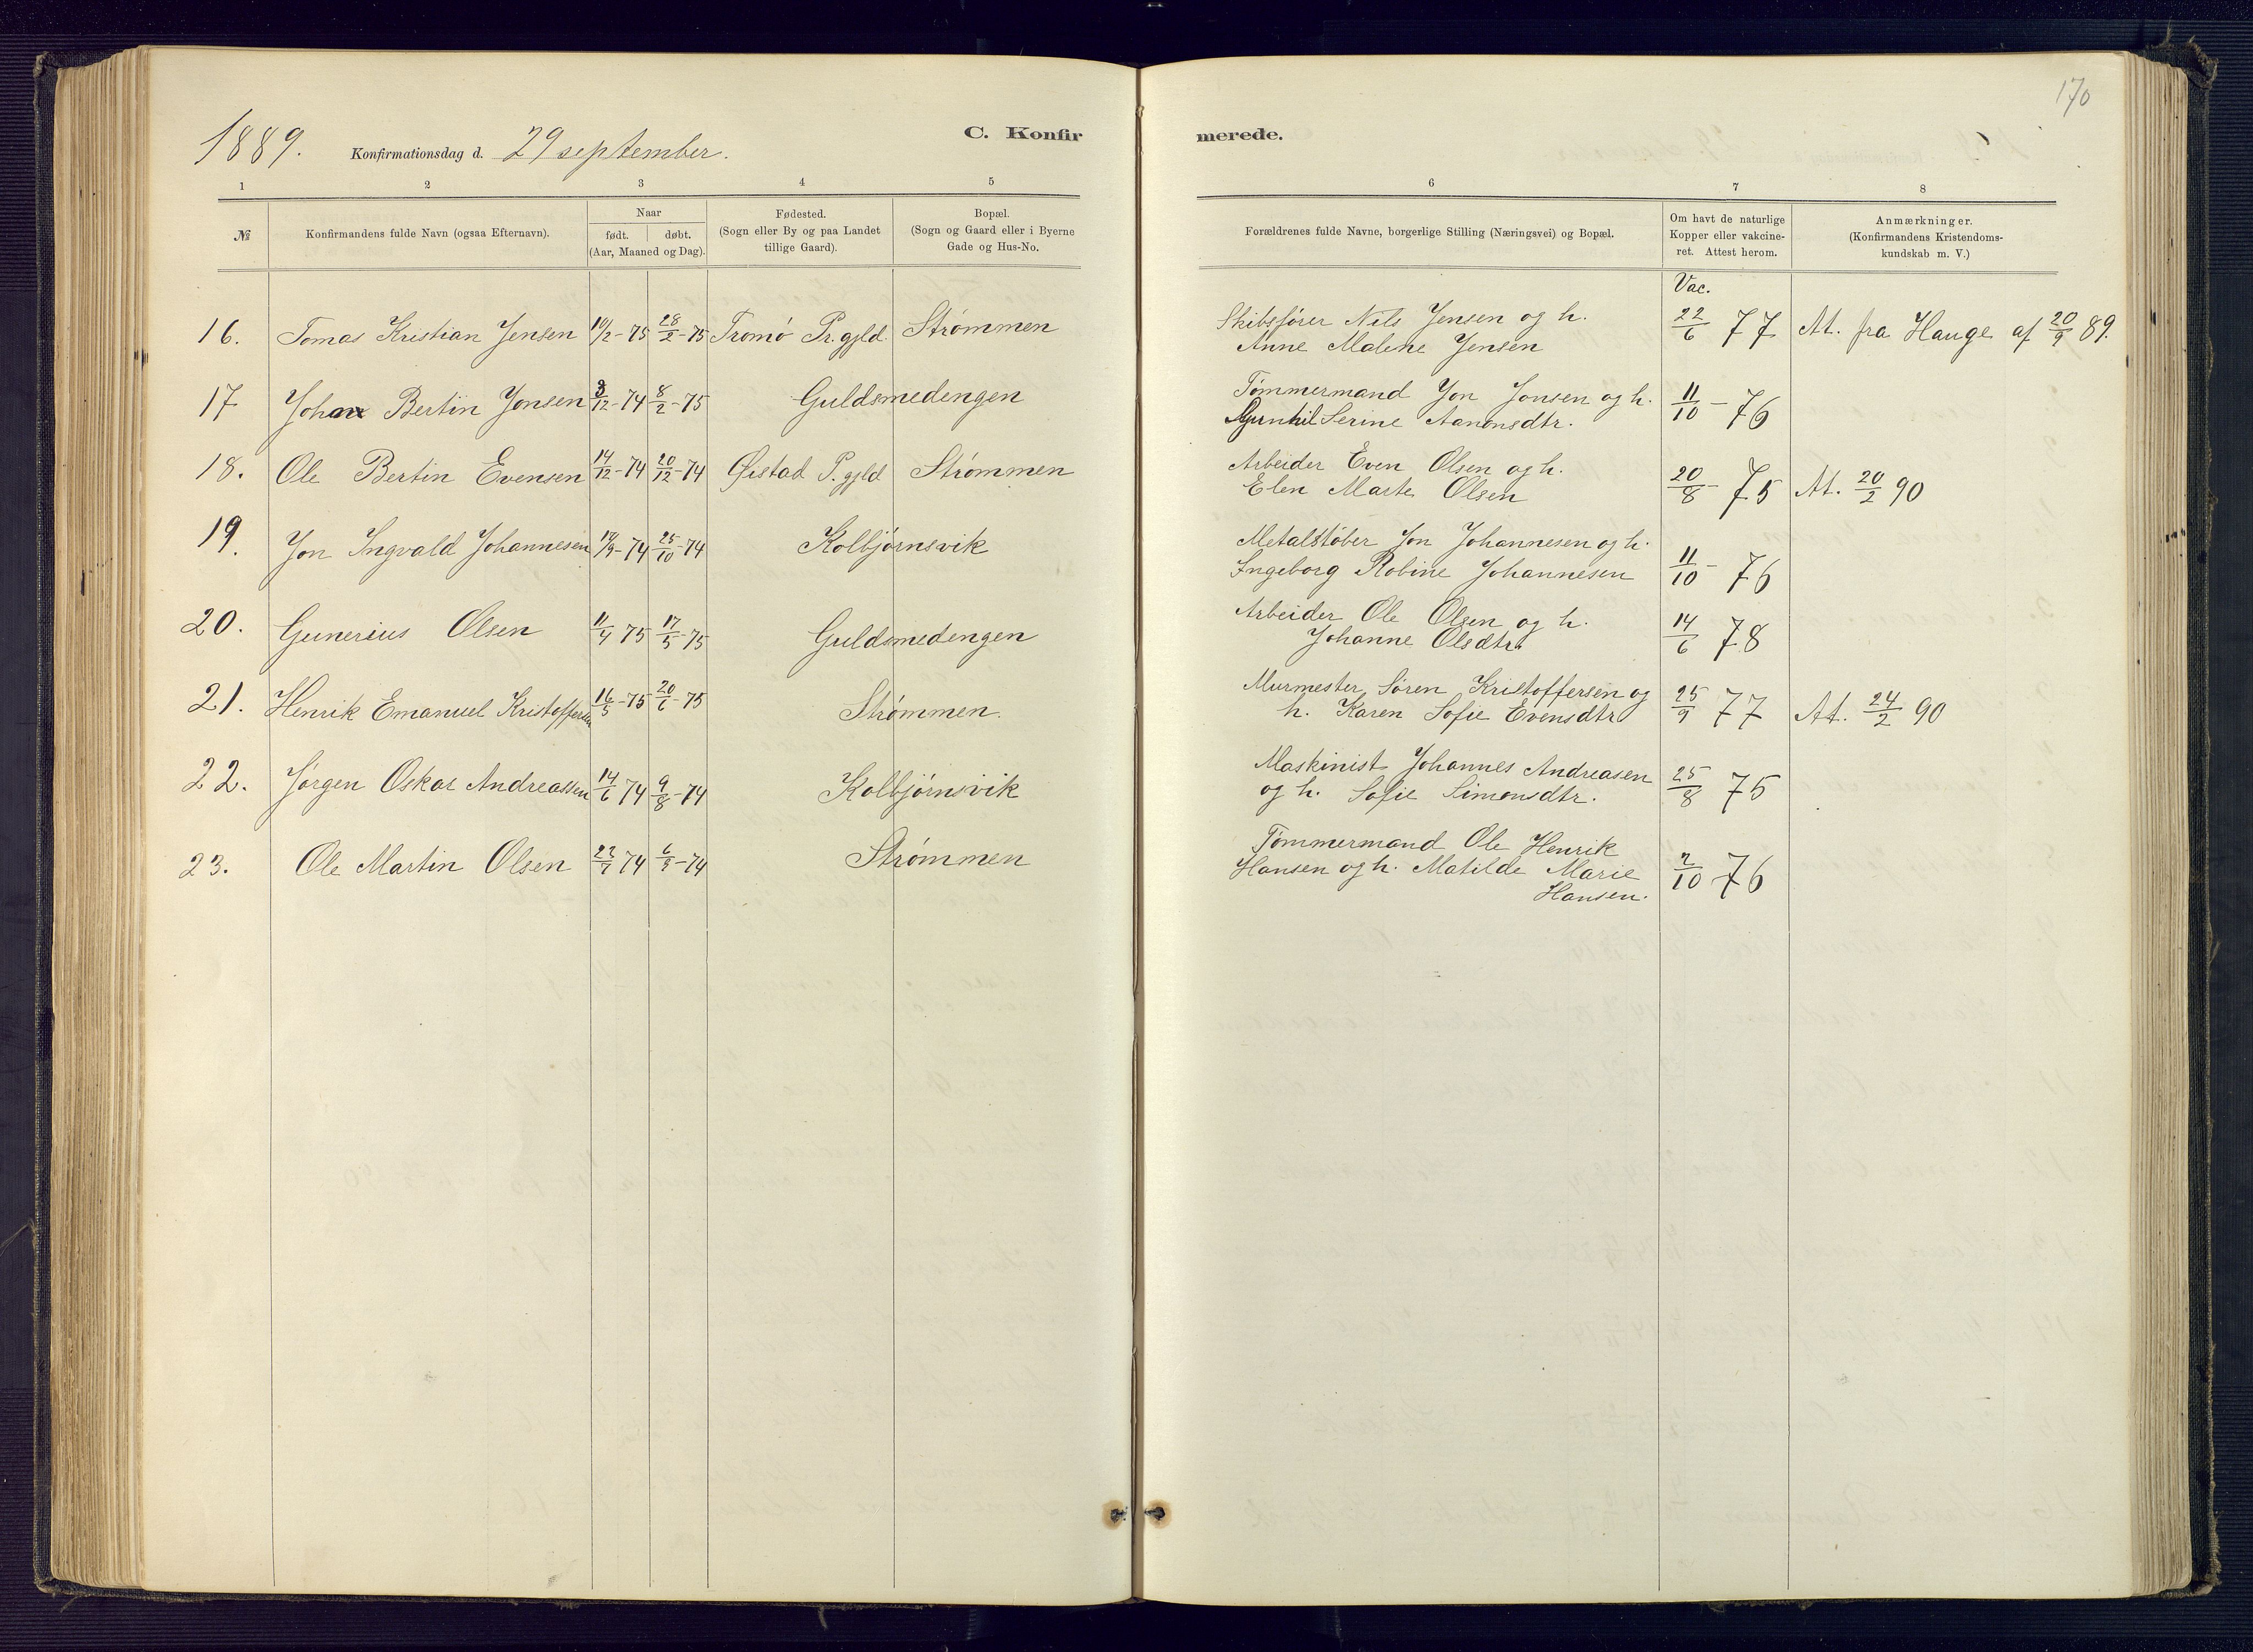 170
1889. Konfirmationsdag d. 29 september. C. Konfirmerede.
1 2 3 4 5 6 7 8
№ Konfirmandens fulde Navn (ogsaa Efternavn). Naar født. døbt. (Aar, Maaned og Dag). Fødested. (Sogn eller By og paa Landet tillige Gaard). Bopæl. (Sogn og Gaard eller i Byerne Gade og Hus-No. Forældrenes fulde Navne, borgerlige Stilling (Næringsvei) og Bopæl. Om havt de naturlige Kopper eller vakcineret. Attest herom. Anmærkninger. (Konfirmandens Kristendomskundskab m. V.)
Vac.
16. Tomas Kristian Jensen 10/2-75 28/2-75 Tromø Pr.gjld. Strømmen Skibsfører Nils Jensen og h. Anne Malene Jensen 22/6 77 At. fra Hauge af 20/9 89.
17 Johan Bertin Jonsen 3/12-74 8/2-75 Guldsmedengen Tømmermand Jon Jonsen og h. Gunhil Serine Aanonsdtr. 11/10-76
18. Ole Bertin Evensen 14/12-74 20/12-74 Øistad P.gjld Strømmen Arbeider Even Olsen og h. Elen Marte Olsen 20/8-75 At. 20/2 90
19. Jon Ingvald Johannesen 17/9-74 25/10-74 Kolbjørnsvik Metalstøber Jon Johannesen og h. Ingeborg Robine Johannesen 11/10-76
20. Gunerius Olsen 11/4 75 17/5-75 Guldsmedengen Arbeider Ole Olsen og h. Johanne Olsdtr. 14/6 78
21. Henrik Emanuel Kristoffersen 16/5-75 20/6-75 Strømmen. Murmester Søren Kristoffersen og h. Karen Sofie Evensdtr 25/9 77 At. 24/2 90
22. Jørgen Oskar Andreassen 14/6 74 9/8-74 Kolbjørnsvik Maskinist Johannes Andreasen og h. Sofie Simonsdtr. 25/8 75
23. Ole Martin Olsen 74 74 Strømmen Tømmermand Ole Henrik Hansen og h. Matilde Marie Hansen. 2/10 76